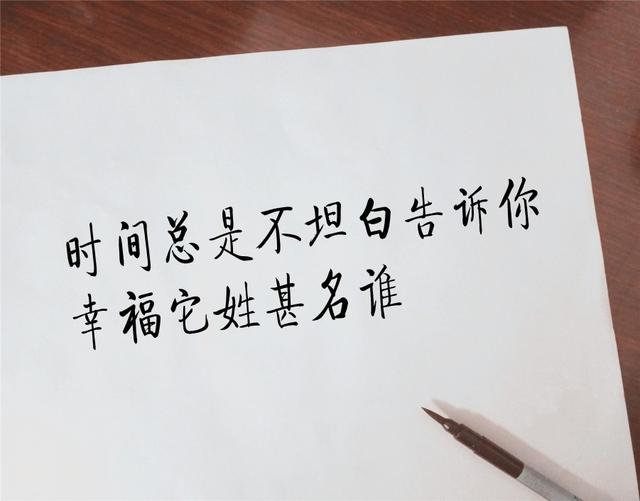 时间总是不坦白告诉你
幸福它姓甚名谁